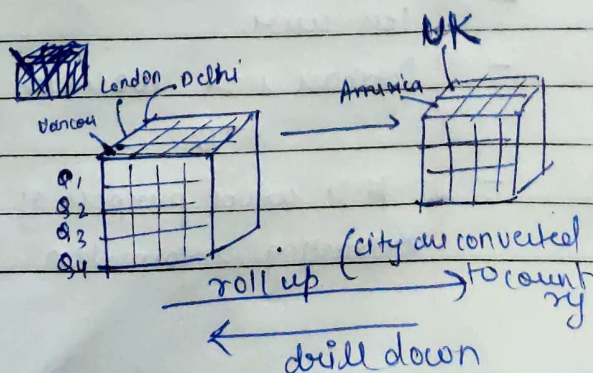 London
Delhi
Vancou
Q1
Q2
Q3
Q4
UK
America
roll up (city are converted
to count
ry
drill down